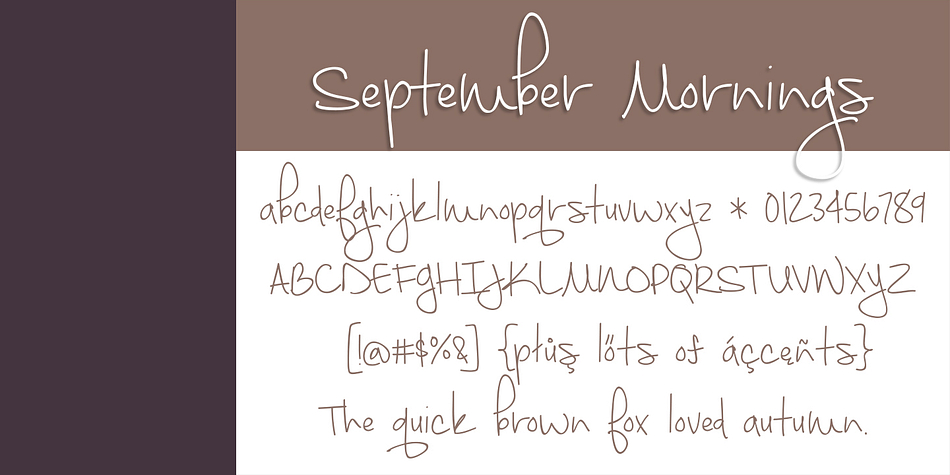 September Mornings
abcdefghijklmnopqrstuvwxyz * 0123456789
ABCDEFGHIJKLMNOPQRSTUVWXYZ
[!@#$%&] {płůş lőts of áççęñts}
The quick brown fox loved autumn.